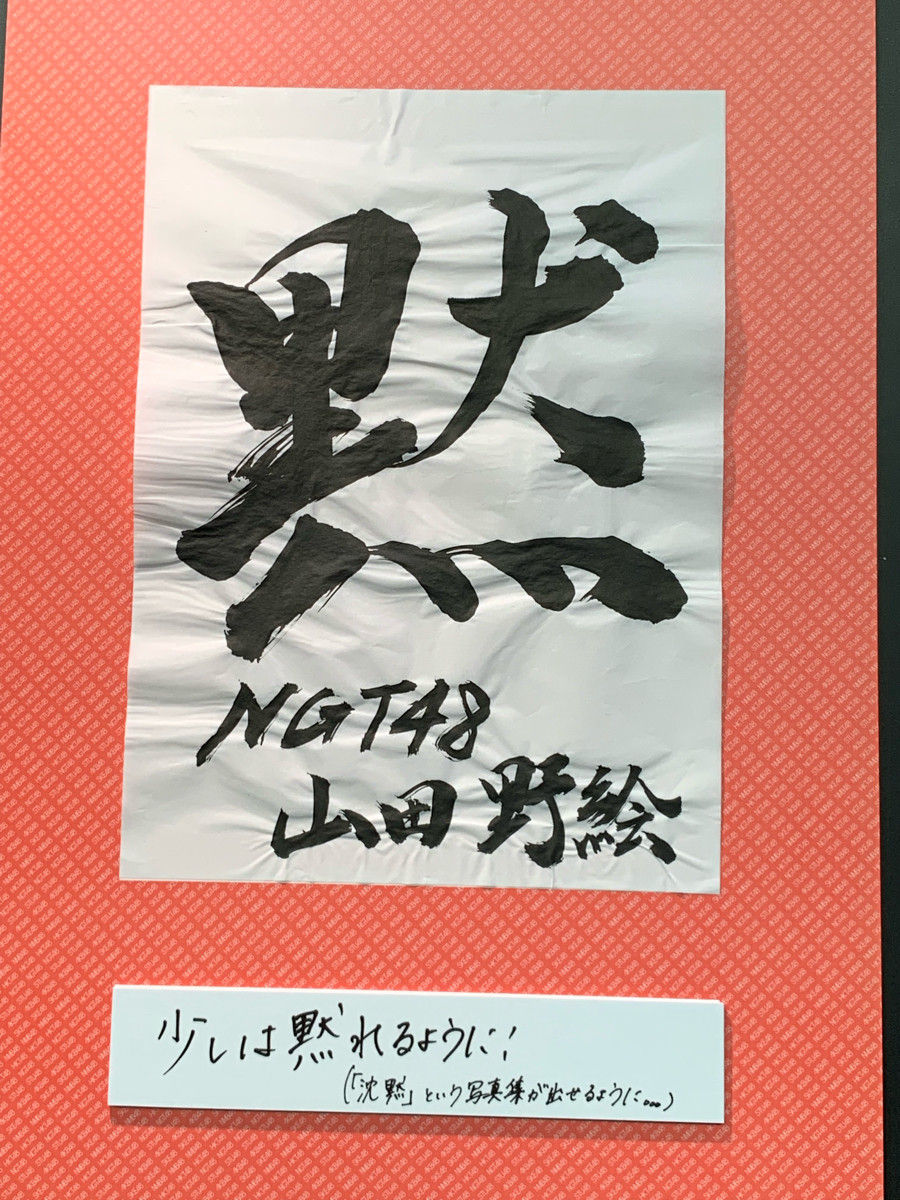 黙
NGT48
山田野絵
少しは黙れるように!
(「沈黙」という写真集が出せるように...)